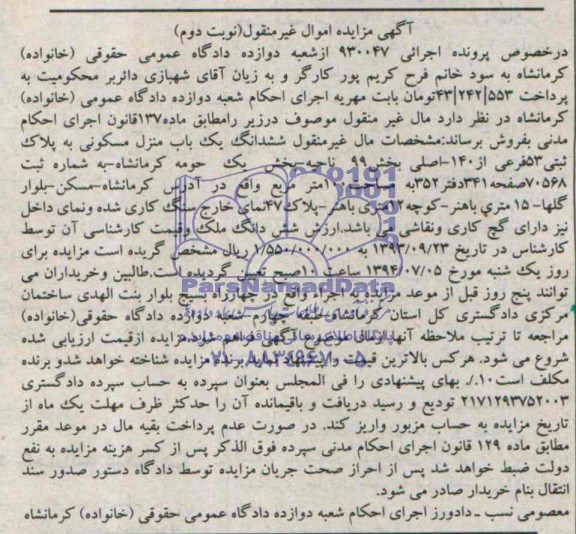 آگهی مزایده اموال غیرمنقول(نوبت دوم)
درخصوص پرونده اجرائی ۹۳۰۰۴۷ ازشعبه دوازده دادگاه عمومی حقوقی (خانواده)
کرمانشاه به سود خانم فرح کریم پور کارگر و به زیان آقای شهبازی دائربر محکومیت به
پرداخت ۴۳/۲۴۲/۵۵۳تومان بابت مهریه اجرای احکام شعبه دوازده دادگاه عمومی (خانواده)
کرمانشاه در نظر دارد مال غیر منقول موصوف درزیر رامطابق ماده۱۳۷قانون اجرای احکام
مدنی بفروش برساند:مشخصات مال غیرمنقول ششدانگ یک باب منزل مسکونی به پلاک
ثبتی۵۳فرعی از۱۴۰-اصلی بخش۹۹ ناحیه-بخش یک حومه کرمانشاه-به شماره ثبت
۷۰۵۶۸صفحه۳۴۱دفتر۳۵۲به مساحت متر مربع واقع در آدرس کرمانشاه-مسکن-بلوار
گلها-۱۵متری باهنر-کوچه۱۲متری باهنر-پلاک۴۷نمای خارج سنگ کاری شده ونمای داخل
نیز دارای گچ کاری ونقاشی می باشد.ارزش شش دانگ ملک وقیمت کارشناسی آن توسط
کارشناس در تاریخ ۱۳۹۳/۰۹/۲۳ به ۱/۵۵۰/۰۰۰/۰۰۰ ریال مشخص گریده است مزایده برای
روز یک شنبه مورخ ۱۳۹۴/۰۷/۰۵ ساعت ۱۰صبح تعیین گردیده است.طالبین وخریداران می
توانند پنج روز قبل از موعد مزایده به اجراء واقع در چهارراه بسیج بلوار بنت الهدی ساختمان
مرکزی دادگستری کل استان کرمانشاه-طبقه چهارم شعبه دوازده دادگاه حقوقی(خانواده)
مراجعه تا ترتیب ملاحظه آنها ازمال موضوع آگهی فراهم شود.مزایده ازقیمت ارزیابی شده
شروع می شود. هرکس بالاترین قیمت را پیشنهاد نماید برنده مزایده شناخته خواهد شدو برنده
مکلف است۱۰٪ بهای پیشنهادی را فی المجلس بعنوان سپرده به حساب سپرده دادگستری
۲۱۷۱۲۹۳۷۵۲۰۰۳ تودیع و رسید دریافت و باقیمانده آن را حدکثر ظرف مهلت یک ماه از
تاریخ مزایده به حساب مزبور واریز کند. در صورت عدم پرداخت بقیه مال در موعد مقرر
مطابق ماده ۱۲۹ قانون اجرای احکام مدنی سپرده فوق الذکر پس از کسر هزینه مزایده به نفع
دولت ضبط خواهد شد پس از احراز صحت جریان مزایده توسط دادگاه دستور صدور سند
انتقال بنام خریدار صادر می شود.
معصومی نسب - دادورز اجرای احکام شعبه دوازده دادگاه عمومی حقوقی (خانواده) کرمانشاه
ParsNamadData
۰۲۱-۸۸۳۴۹۶۷۰-۵